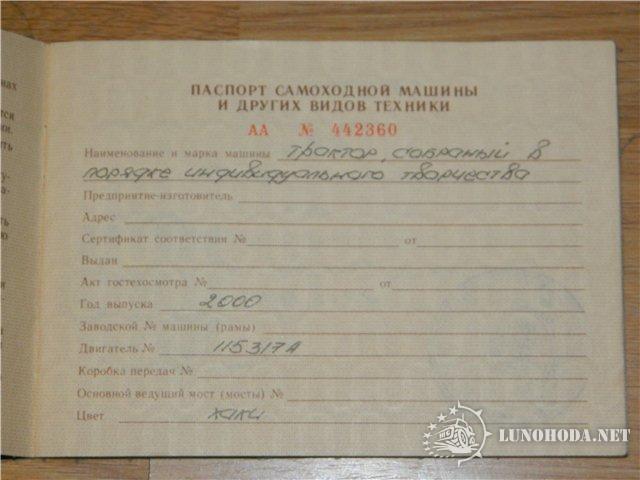 ПАСПОРТ САМОХОДНОЙ МАШИНЫ
И ДРУГИХ ВИДОВ ТЕХНИКИ
АА № 442360
Наименование и марка машины трактор, собраный в
порядке индивидуального творчества
Предприятие-изготовитель
Адрес
Сертификат соответствия № от
Выдан
Акт гостехосмотра № от
Год выпуска 2000
Заводской № машины (рамы)
Двигатель № 115317А
Коробка передач №
Основной ведущий мост (мосты) №
Цвет хаки
LUNOHODA.NET